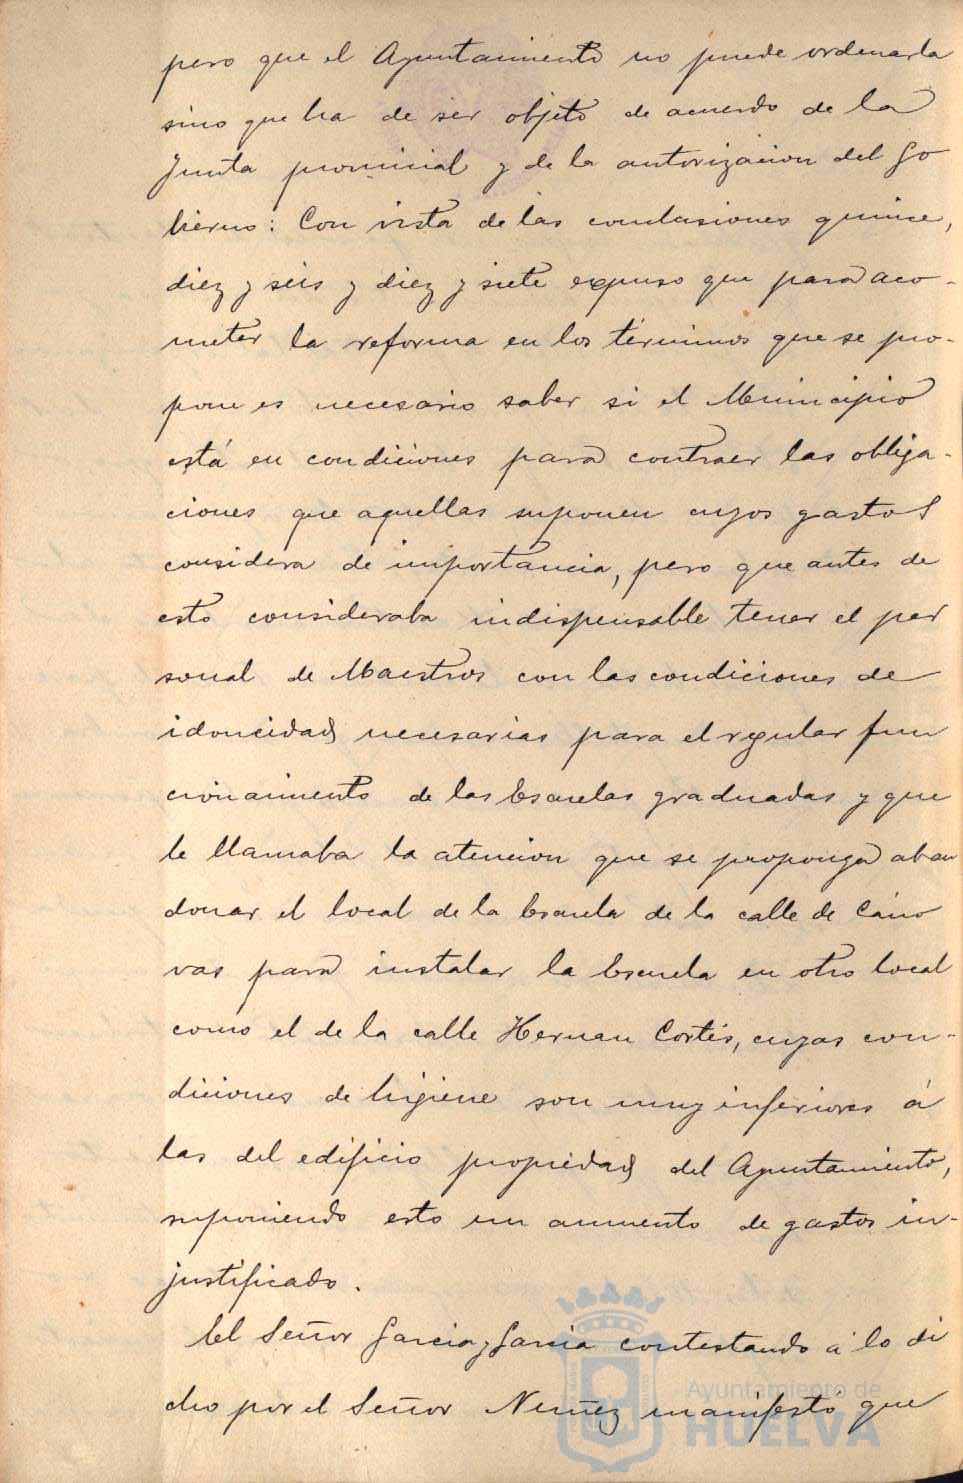 pero que el Ayuntamiento no puede ordenarla
sino que ha de ser objeto de acuerdo de la
Junta provincial y de la autorizacion del Go
bierno: Con vista de las conclusiones quince,
diez y seis y diez y siete expuso que para aco-
meter la reforma en los términos que se pro-
pone es necesario saber si el Municipio
está en condiciones para contraer las obliga-
ciones que aquellas suponen cuyos gastos
considera de importancia, pero que antes de
esto consideraba indispensable tener el per
sonal de Maestros con las condiciones de
idoneidad necesarias para el regular fun
cionamiento de las Escuelas graduadas y que
le llamaba la atencion que se proponga aban
donar el local de la Escuela de la calle de Cáno
vas para instalar la Escuela en otro local
como el de la calle Hernan Cortés, cuyas con-
diciones de higiene son muy inferiores á
las del edificio propiedad del Ayuntamiento,
suponiendo esto un aumento de gastos in-
justificado.
El Señor Garcia y Garcia contestando á lo di
cho por el Señor Nuñez manifestó que
Ayuntamiento de
HUELVA